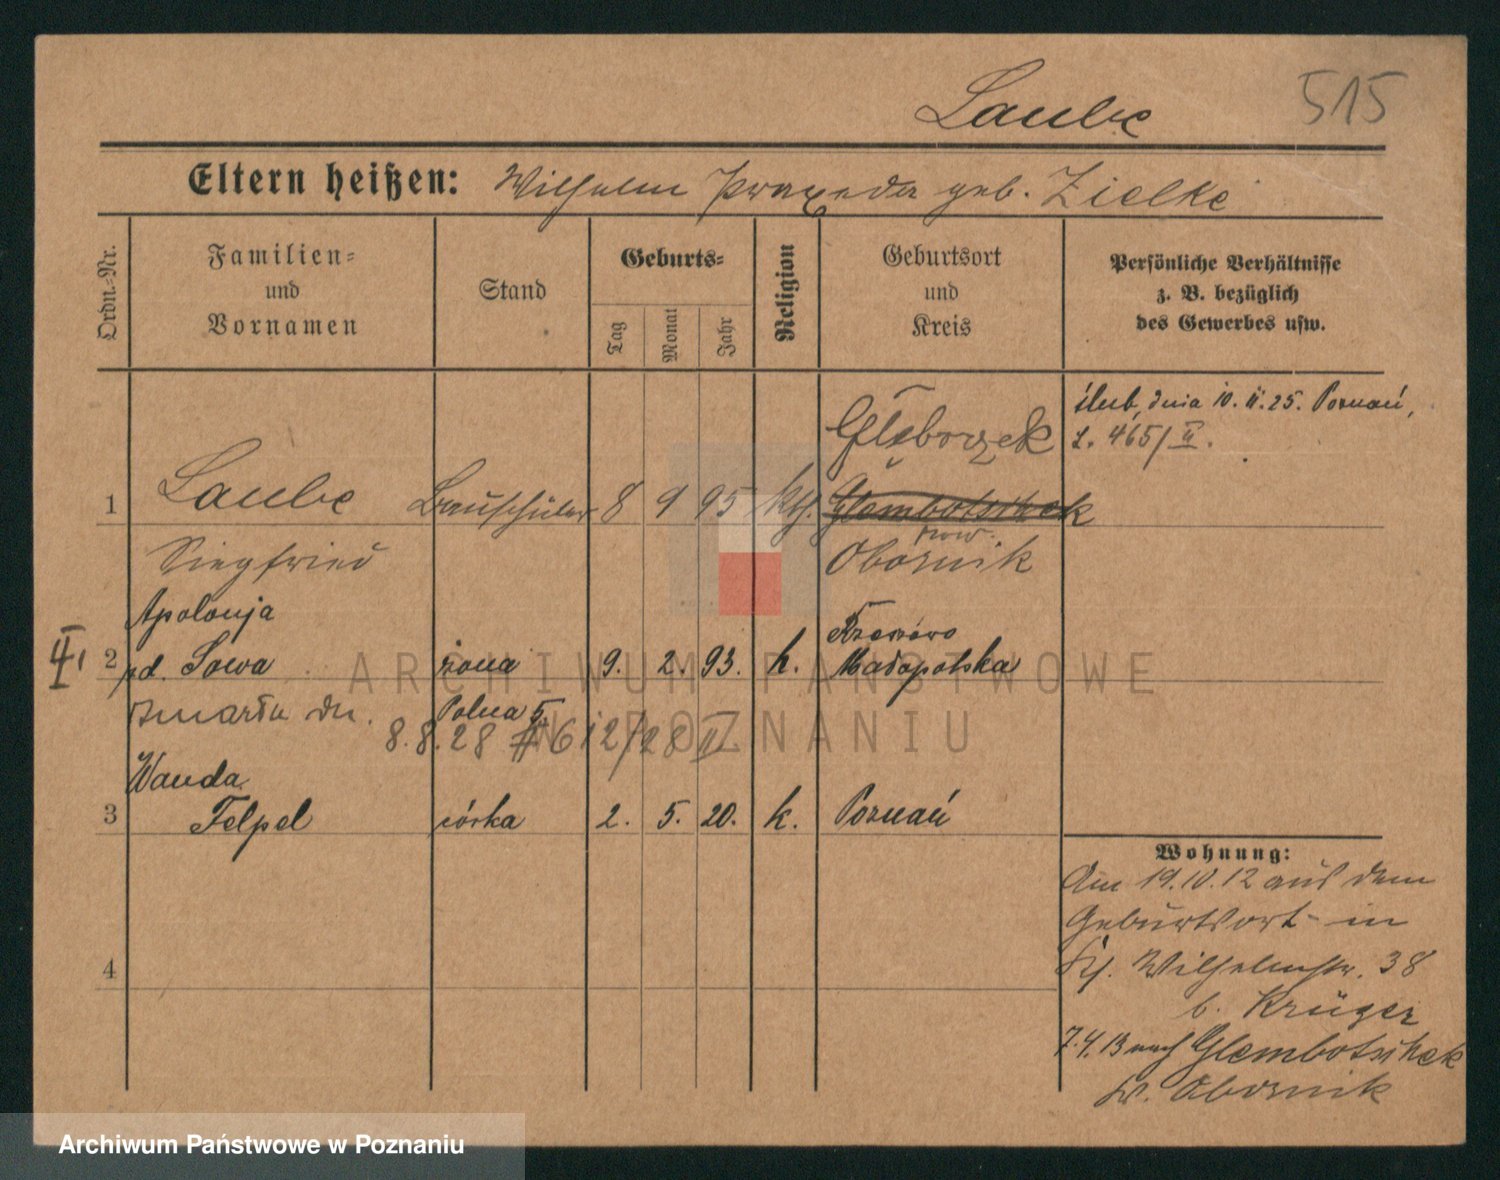 Laube 515
Eltern heißen: Wilhelm Praxeda geb. Zielke
Ordn.-Nr.
Familien-
und
Vornamen
Stand
Geburts-
Tag
Monat
Jahr
Religion
Geburtsort
und
Kreis
Persönliche Verhältnisse
z. B. bezüglich
des Gewerbes usw.
ślub, dnia 10. II. 25. Poznań,
L. 465/II.
Głęboczek
1 Laube Bauschüler 8 9 95 kth. Glembotschek
Siegfried pow. Obornik
Apolonja
II 2 pd. Sowa żona 9. 2. 93. k. Małopolska
zmarła dn. Polna 5.
8.8.28 # 612/28 II
Wanda
3 Felpel córka 2. 5. 20. k. Poznań
4
Wohnung:
Am 19.10.12 aus dem
Geburtsort in
Wilhelmstr. 38
b. Krüger
7.4.13 nach Glembotschek
Kr. Obornik
ARCHIWUM PAŃSTWOWE
W POZNANIU
Archiwum Państwowe w Poznaniu